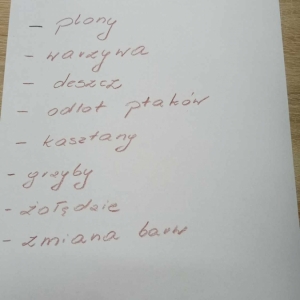 - plony
- warzywa
- deszcz
- odlot ptaków
- kasztany
- grzyby
- żołędzie
- zmiana barw